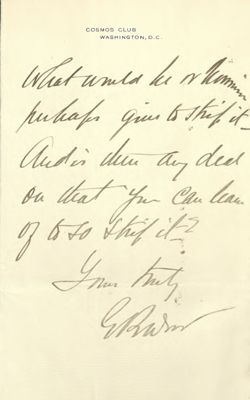 COSMOS CLUB
WASHINGTON, D.C.
What would he or
perhaps give to ship it
And is there any deal
on that you can learn
of to so ship it?
Yours truly